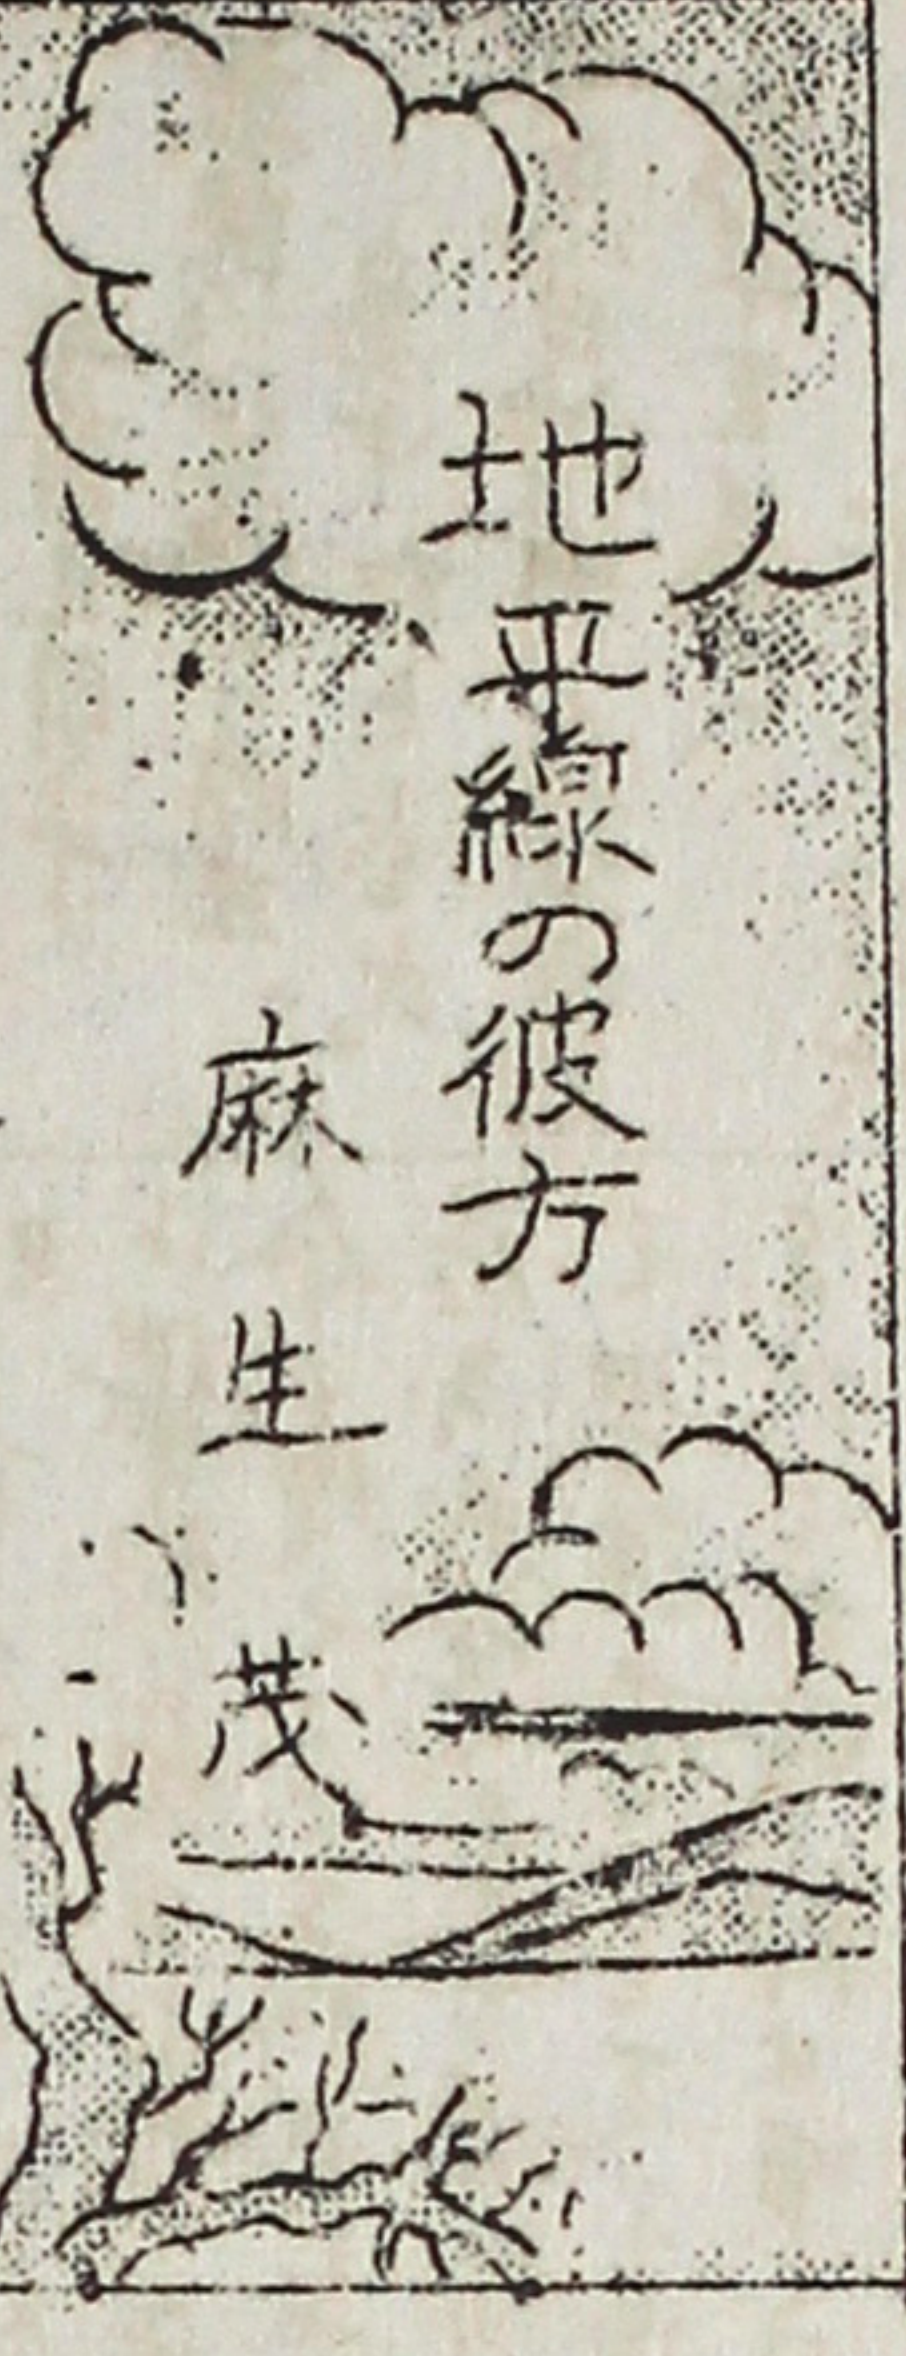 地平線の彼方
麻生茂